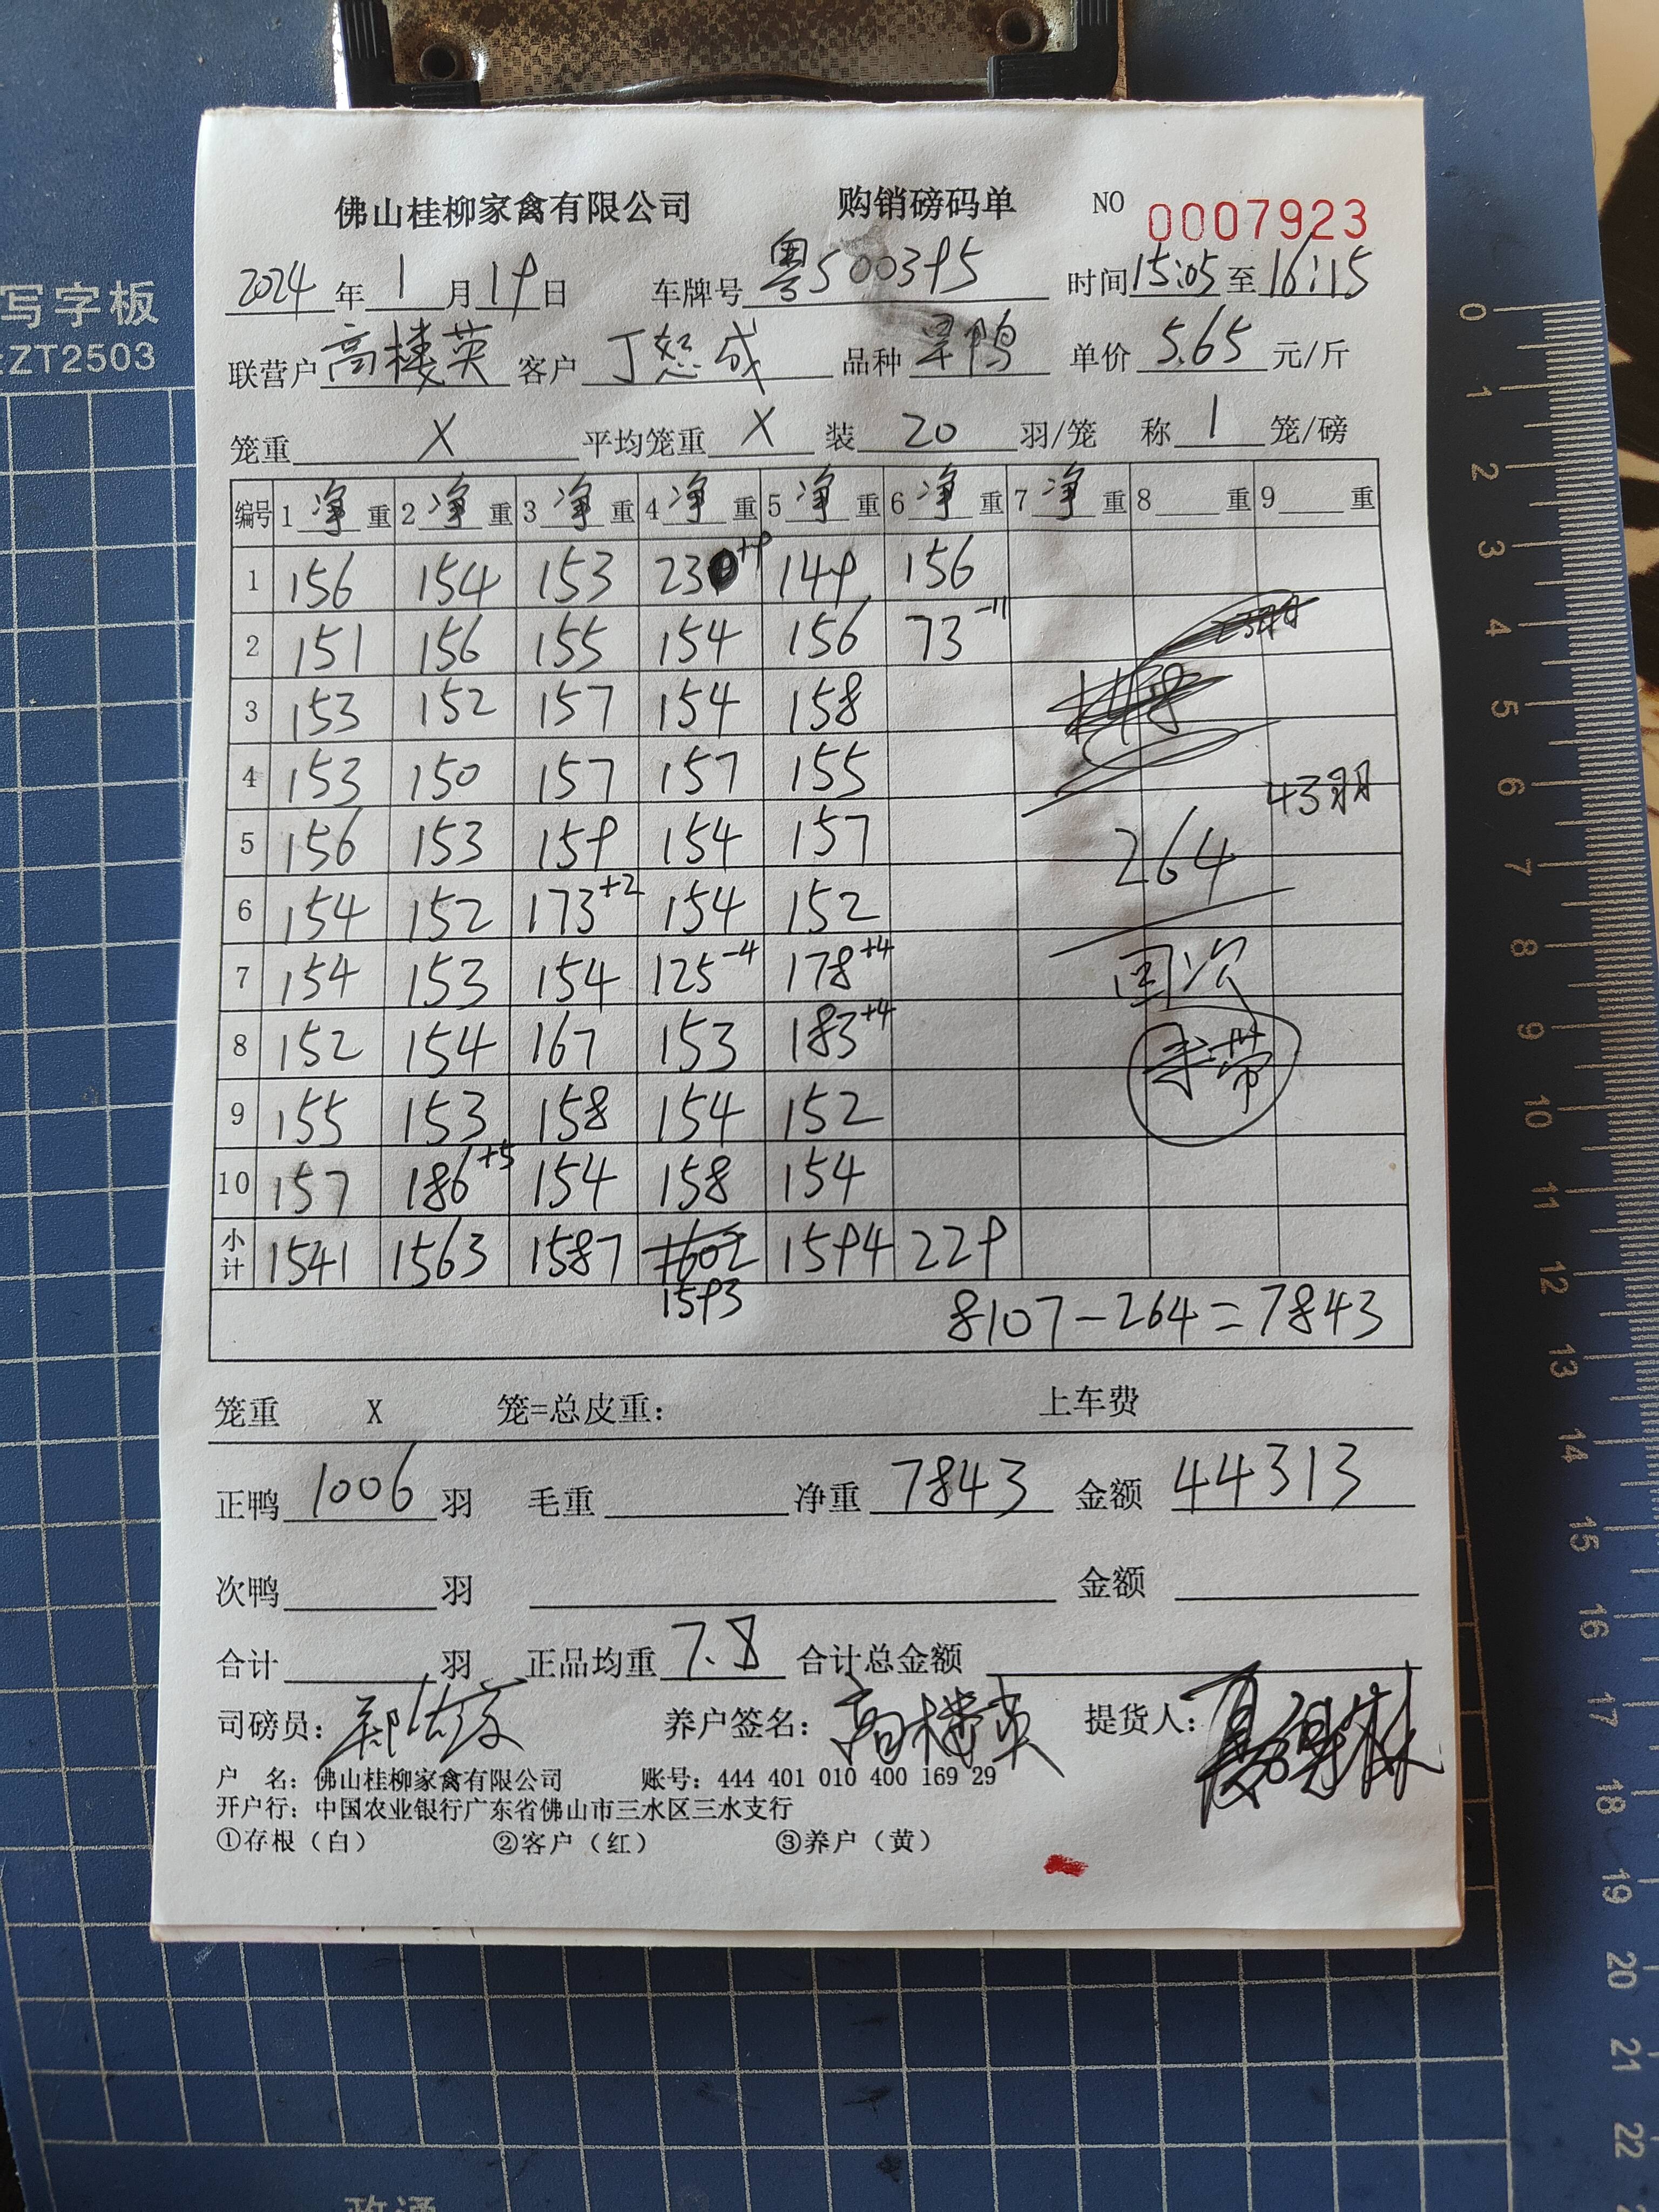 写字板
:ZT2503
佛山桂柳家禽有限公司 购销磅码单 NO 0007923
2024 年 1 月 19 日 车牌号 粤S00395 时间 15:05 至 16:15
联营户 高楼英 客户 丁恕成 品种 旱鸭 单价 5.65 元/斤
笼重 X 平均笼重 X 装 20 羽/笼 称 1 笼/磅
编号 1 净 重 2 净 重 3 净 重 4 净 重 5 净 重 6 净 重 7 净 重 8 重 9 重
1 156 154 153 230+9 149 156
2 151 156 155 154 156 73-11
3 153 152 157 154 158
4 153 150 157 157 155 43羽
5 156 153 159 154 157 264
6 154 152 173+2 154 152
7 154 153 154 125-4 178+4 回次
8 152 154 167 153 183+4 手带
9 155 153 158 154 152
10 157 186+5 154 158 154
小计 1541 1563 1587 1602 1594 229
1593 8107-264=7843
笼重 X 笼=总皮重: 上车费
正鸭 1006 羽 毛重 净重 7843 金额 44313
次鸭 羽 金额
合计 羽 正品均重 7.8 合计总金额
司磅员: 养户签名: 高楼英 提货人:
户 名: 佛山桂柳家禽有限公司 账号: 444 401 010 400 169 29
开户行: 中国农业银行广东省佛山市三水区三水支行
①存根（白） ②客户（红） ③养户（黄）
0
1
2
3
4
5
6
7
8
9
10
11
12
13
14
15
16
17
18
19
20
21
22